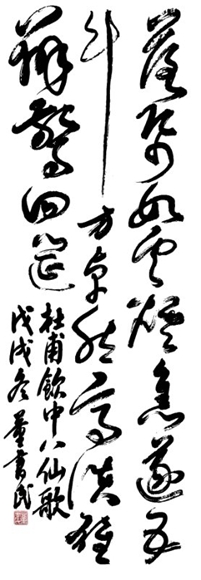 落帋如雲煙焦遂五
斗方卓然高談雄
辯驚四筵
杜甫飲中八仙歌
戊戌冬 董書民